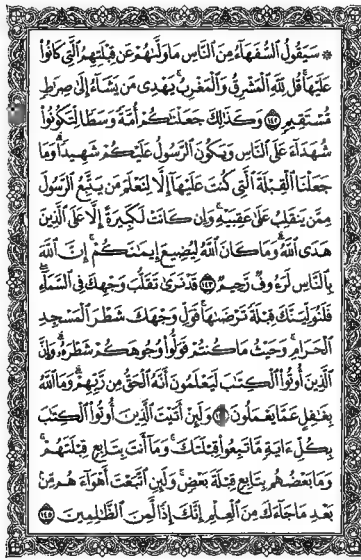 ۞ سَيَقُولُ ٱلسُّفَهَآءُ مِنَ ٱلنَّاسِ مَا وَلَّىٰهُمْ عَن قِبْلَتِهِمُ ٱلَّتِى كَانُوا۟
عَلَيْهَا ۚ قُل لِّلَّهِ ٱلْمَشْرِقُ وَٱلْمَغْرِبُ ۚ يَهْدِى مَن يَشَآءُ إِلَىٰ صِرَٰطٍ
مُّسْتَقِيمٍ ١٤٢ وَكَذَٰلِكَ جَعَلْنَٰكُمْ أُمَّةً وَسَطًا لِّتَكُونُوا۟
شُهَدَآءَ عَلَى ٱلنَّاسِ وَيَكُونَ ٱلرَّسُولُ عَلَيْكُمْ شَهِيدًا ۗ وَمَا
جَعَلْنَا ٱلْقِبْلَةَ ٱلَّتِى كُنتَ عَلَيْهَآ إِلَّا لِنَعْلَمَ مَن يَتَّبِعُ ٱلرَّسُولَ
مِمَّن يَنقَلِبُ عَلَىٰ عَقِبَيْهِ ۚ وَإِن كَانَتْ لَكَبِيرَةً إِلَّا عَلَى ٱلَّذِينَ
هَدَى ٱللَّهُ ۗ وَمَا كَانَ ٱللَّهُ لِيُضِيعَ إِيمَٰنَكُمْ ۚ إِنَّ ٱللَّهَ
بِٱلنَّاسِ لَرَءُوفٌ رَّحِيمٌ ١٤٣ قَدْ نَرَىٰ تَقَلُّبَ وَجْهِكَ فِى ٱلسَّمَآءِ ۖ
فَلَنُوَلِّيَنَّكَ قِبْلَةً تَرْضَىٰهَا ۚ فَوَلِّ وَجْهَكَ شَطْرَ ٱلْمَسْجِدِ
ٱلْحَرَامِ ۚ وَحَيْثُ مَا كُنتُمْ فَوَلُّوا۟ وُجُوهَكُمْ شَطْرَهُۥ ۗ وَإِنَّ
ٱلَّذِينَ أُوتُوا۟ ٱلْكِتَٰبَ لَيَعْلَمُونَ أَنَّهُ ٱلْحَقُّ مِن رَّبِّهِمْ ۗ وَمَا ٱللَّهُ
بِغَٰفِلٍ عَمَّا يَعْمَلُونَ وَلَئِنْ أَتَيْتَ ٱلَّذِينَ أُوتُوا۟ ٱلْكِتَٰبَ
بِكُلِّ ءَايَةٍ مَّا تَبِعُوا۟ قِبْلَتَكَ ۚ وَمَآ أَنتَ بِتَابِعٍ قِبْلَتَهُمْ ۚ
وَمَا بَعْضُهُم بِتَابِعٍ قِبْلَةَ بَعْضٍ ۚ وَلَئِنِ ٱتَّبَعْتَ أَهْوَآءَهُم مِّنۢ
بَعْدِ مَا جَآءَكَ مِنَ ٱلْعِلْمِ ۙ إِنَّكَ إِذًا لَّمِنَ ٱلظَّٰلِمِينَ ١٤٥